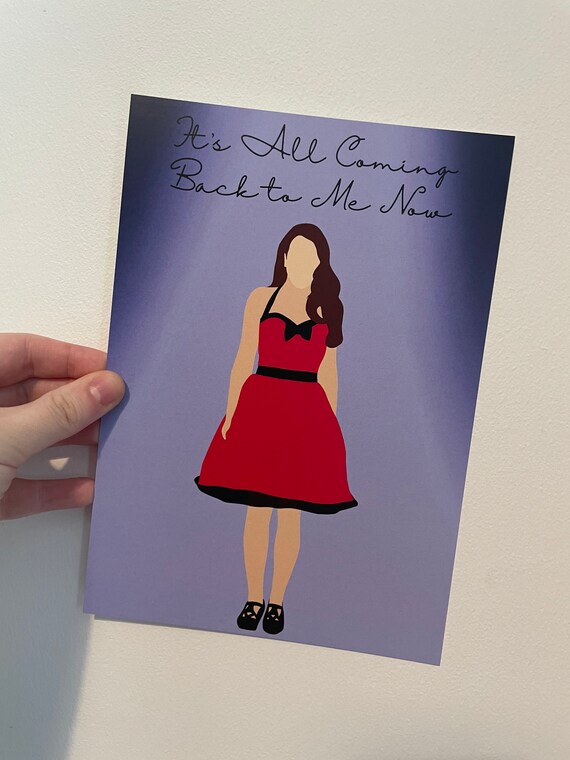 It's All Coming
Back to Me Now